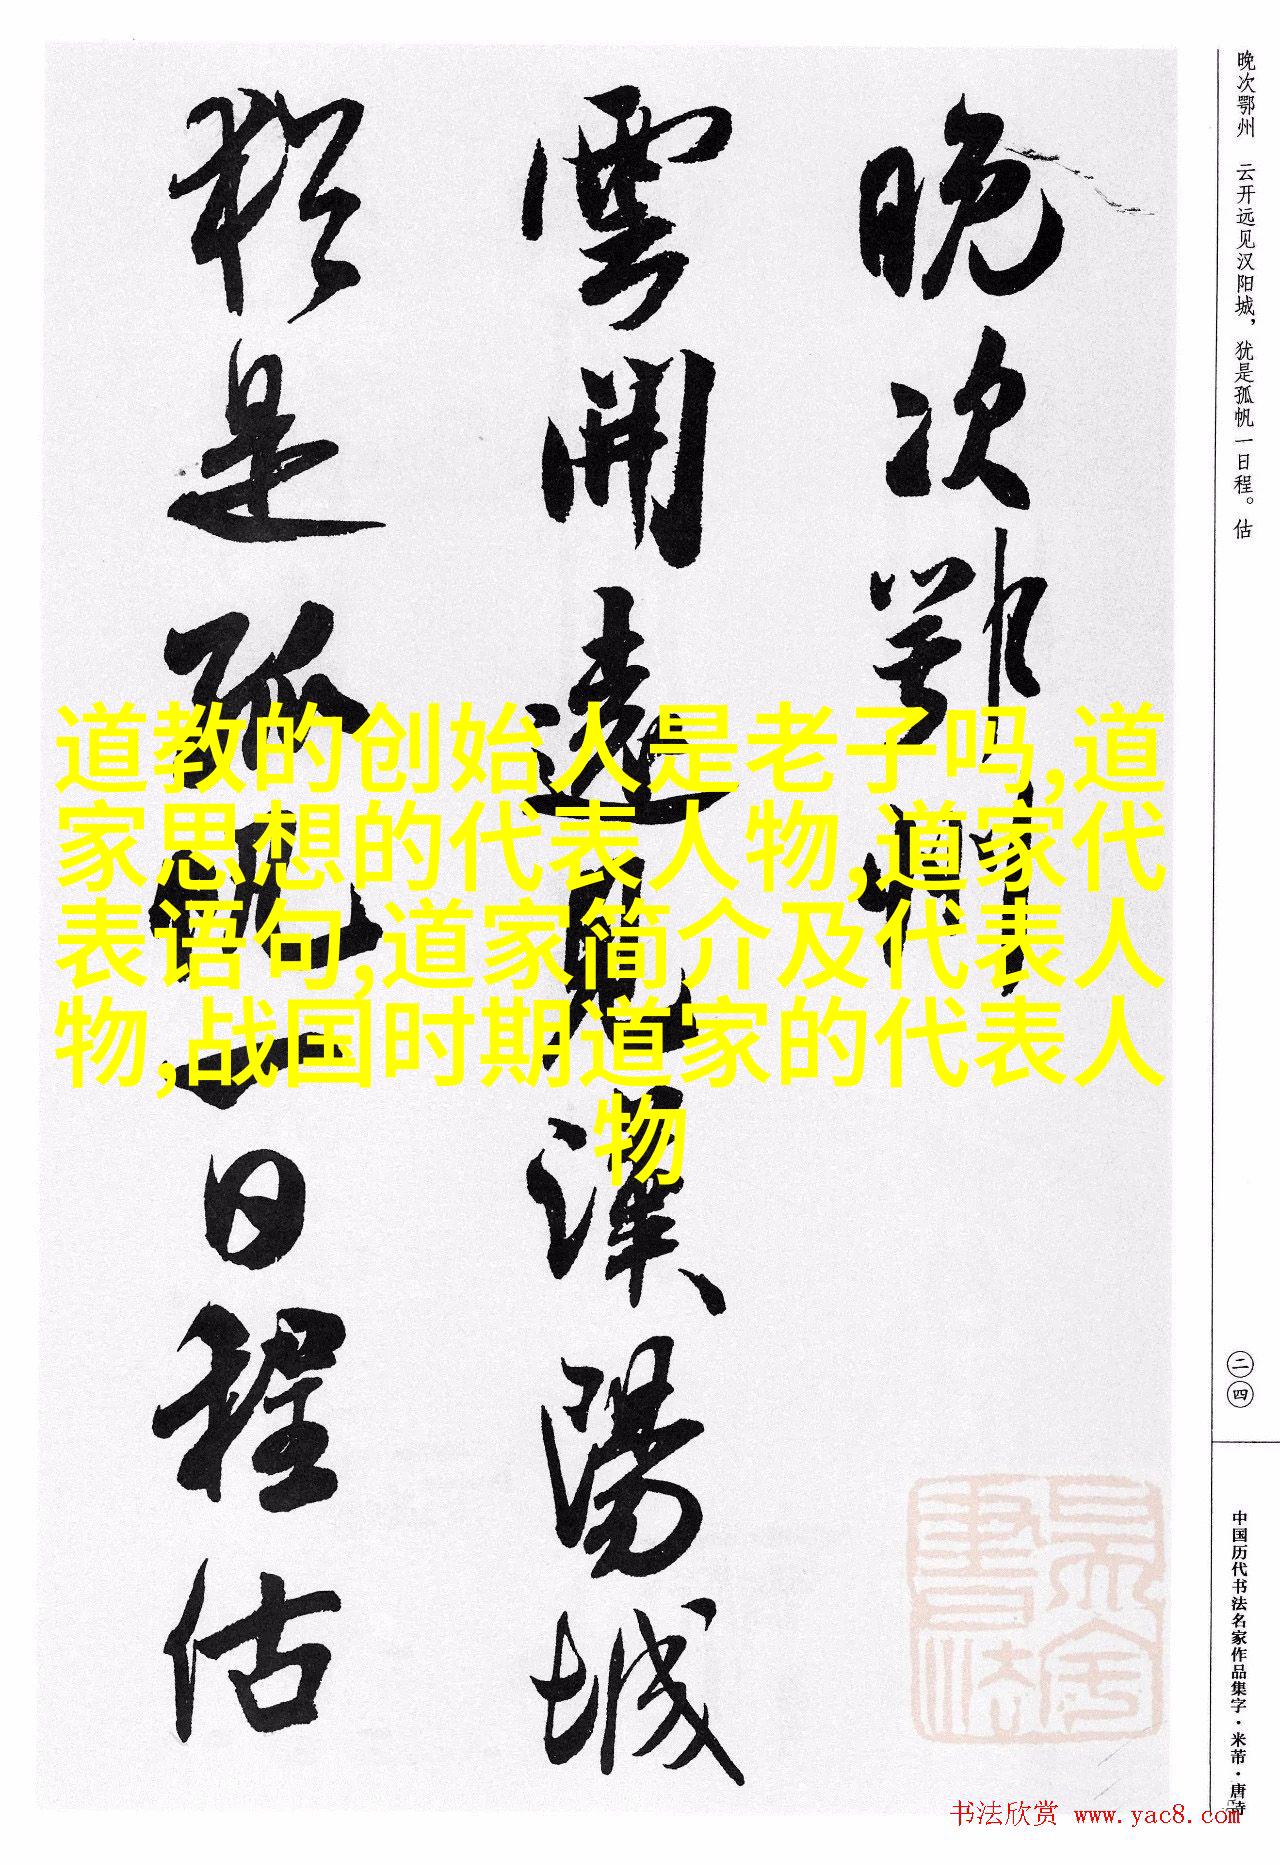 晚次鄂州
雲開遠見漢陽城
猶是孤帆一日程估
晚次鄂州 云开远见汉阳城，犹是孤帆一日程。估
二四
中国历代书法名家作品集字·米芾·唐诗
道教的创始人是老子吗,道
家思想的代表人物,道家代
表语句,道家简介及代表人
物,战国时期道家的代表人
物
书法欣赏 www.yac8.com